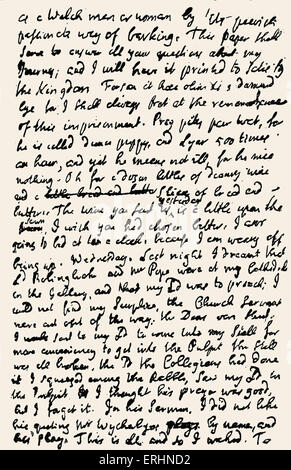 a Welch man or woman by its peevish
passionate way of barking. This paper shall
serve to answer all your questions about my
Journy; and I will have it printed to satisfy
the Kingdom. Forsan et hæc olim is a damned
lye for I shall always fret at the remembrance
of this imprisonment. Pray pity poor Wat, for
he is called dunce puppy, and Lyar 500 times
an hour, and yet he means not ill, for he means
nothing. Oh for a dozen bottles of deanry wine
and a little bread and butter Slice of bread and
butter. The wine you sent us yesterday is a little upon the
sour, I wish you had chosen better. I am
going to bed at ten a clock, because I am weary of
being up. Wednesday. Last night I dreamt that
Ld Bolingbroke and Mr Pope were at my Cathedrall
in the Gallery, and that my Ld was to preach. I
could not find my Surplice, the Church Servants
were out of the way; the Doors were shut.
I sent to my Ld to come into my Stall for
more conveniency to get into the Pulpit The Stall
was all broken, the sd the Collegians had done
it I squeezed among the Rabble, saw my Ld in
the Pulpit I thought his prayer was good,
but I forget it. In his Sermon, I did not like
his quoting Mr Wycherlye by name, and
his plays. This is all and so I waked. To
alamy
ERHND2
www.alamy.com